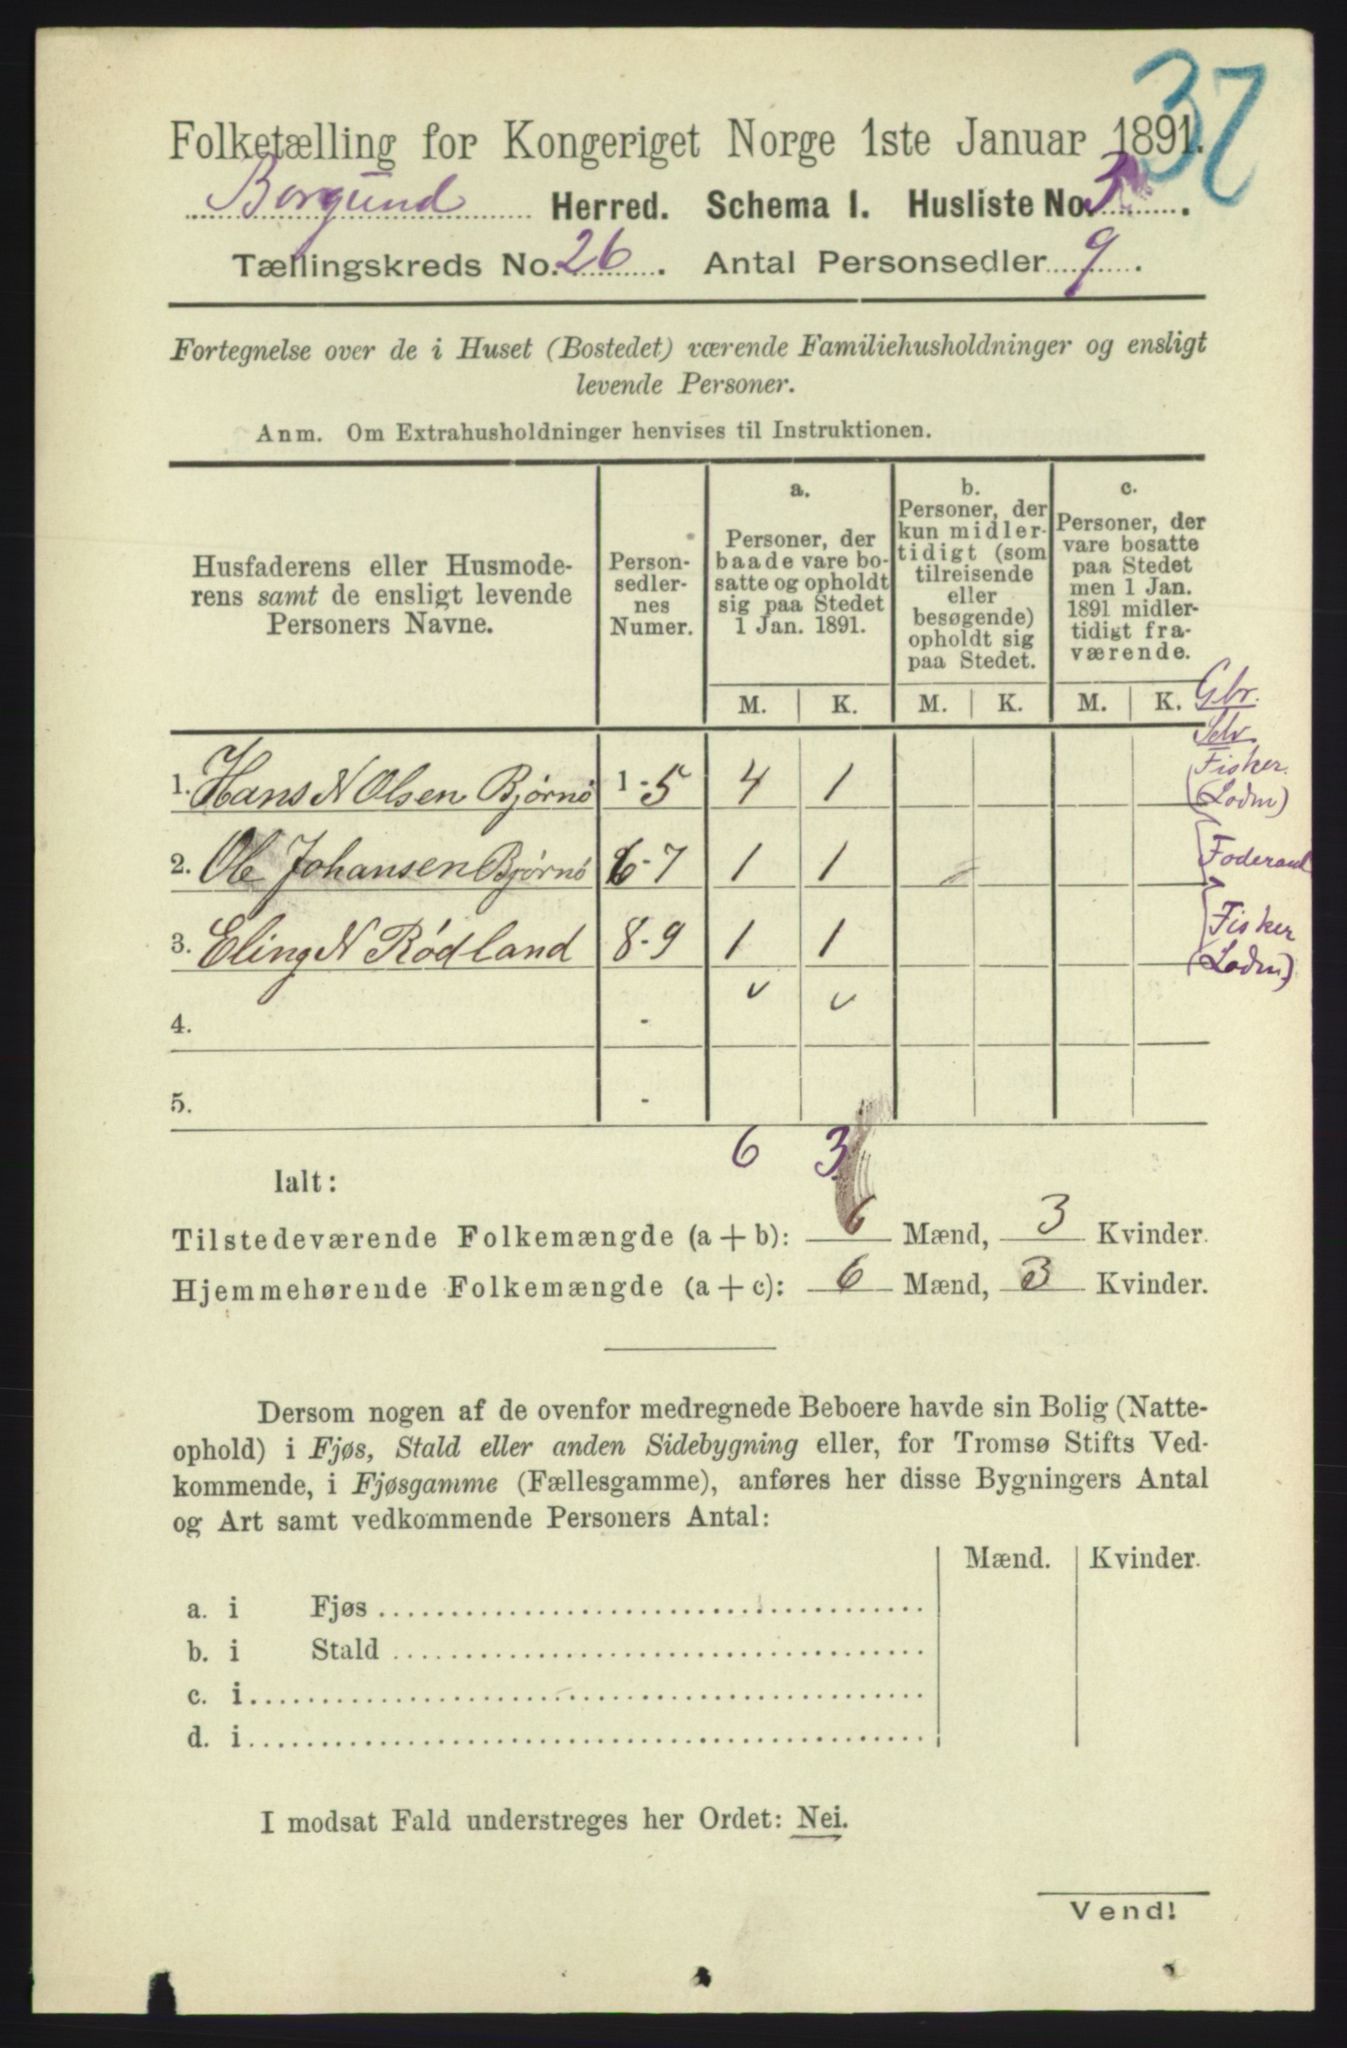 37
Folketælling for Kongeriget Norge 1ste Januar 1891.
Borgund Herred. Schema 1. Husliste No. 3.
Tællingskreds No. 26. Antal Personsedler 9.
Fortegnelse over de i Huset (Bostedet) værende Familiehusholdninger og ensligt
levende Personer.
Anm. Om Extrahusholdninger henvises til Instruktionen.
Husfaderens eller Husmode-
rens samt de ensligt levende
Personers Navne.
Person-
sedler-
nes
Numer.
a.
Personer, der
baade vare bo-
satte og opholdt
sig paa Stedet
1 Jan. 1891.
b.
Personer, der
kun midler-
tidigt (som
tilreisende
eller
besøgende)
opholdt sig
paa Stedet.
c.
Personer, der
vare bosatte
paa Stedet
men 1 Jan.
1891 midler-
tidigt fra-
værende.
M. K. M. K. M. K.
Gbr.
Selv.
1. Hans N Olsen Bjørnø 1-5 4 1
Fisker.
(Lodm)
2. Ole Johansen Bjørnø 6-7 1 1
Foderaad
3. Eling N Rødland 8-9 1 1
Fisker
(Lodm)
4. -
5. -
6 3
Ialt:
Tilstedeværende Folkemængde (a + b): 6 Mænd, 3 Kvinder.
Hjemmehørende Folkemængde (a + c): 6 Mænd, 3 Kvinder.
Dersom nogen af de ovenfor medregnede Beboere havde sin Bolig (Natte-
ophold) i Fjøs, Stald eller anden Sidebygning eller, for Tromsø Stifts Ved-
kommende, i Fjøsgamme (Fællesgamme), anføres her disse Bygningers Antal
og Art samt vedkommende Personers Antal:
Mænd. Kvinder.
a. i Fjøs
b. i Stald
c. i
d. i
I modsat Fald understreges her Ordet: Nei.
Vend!